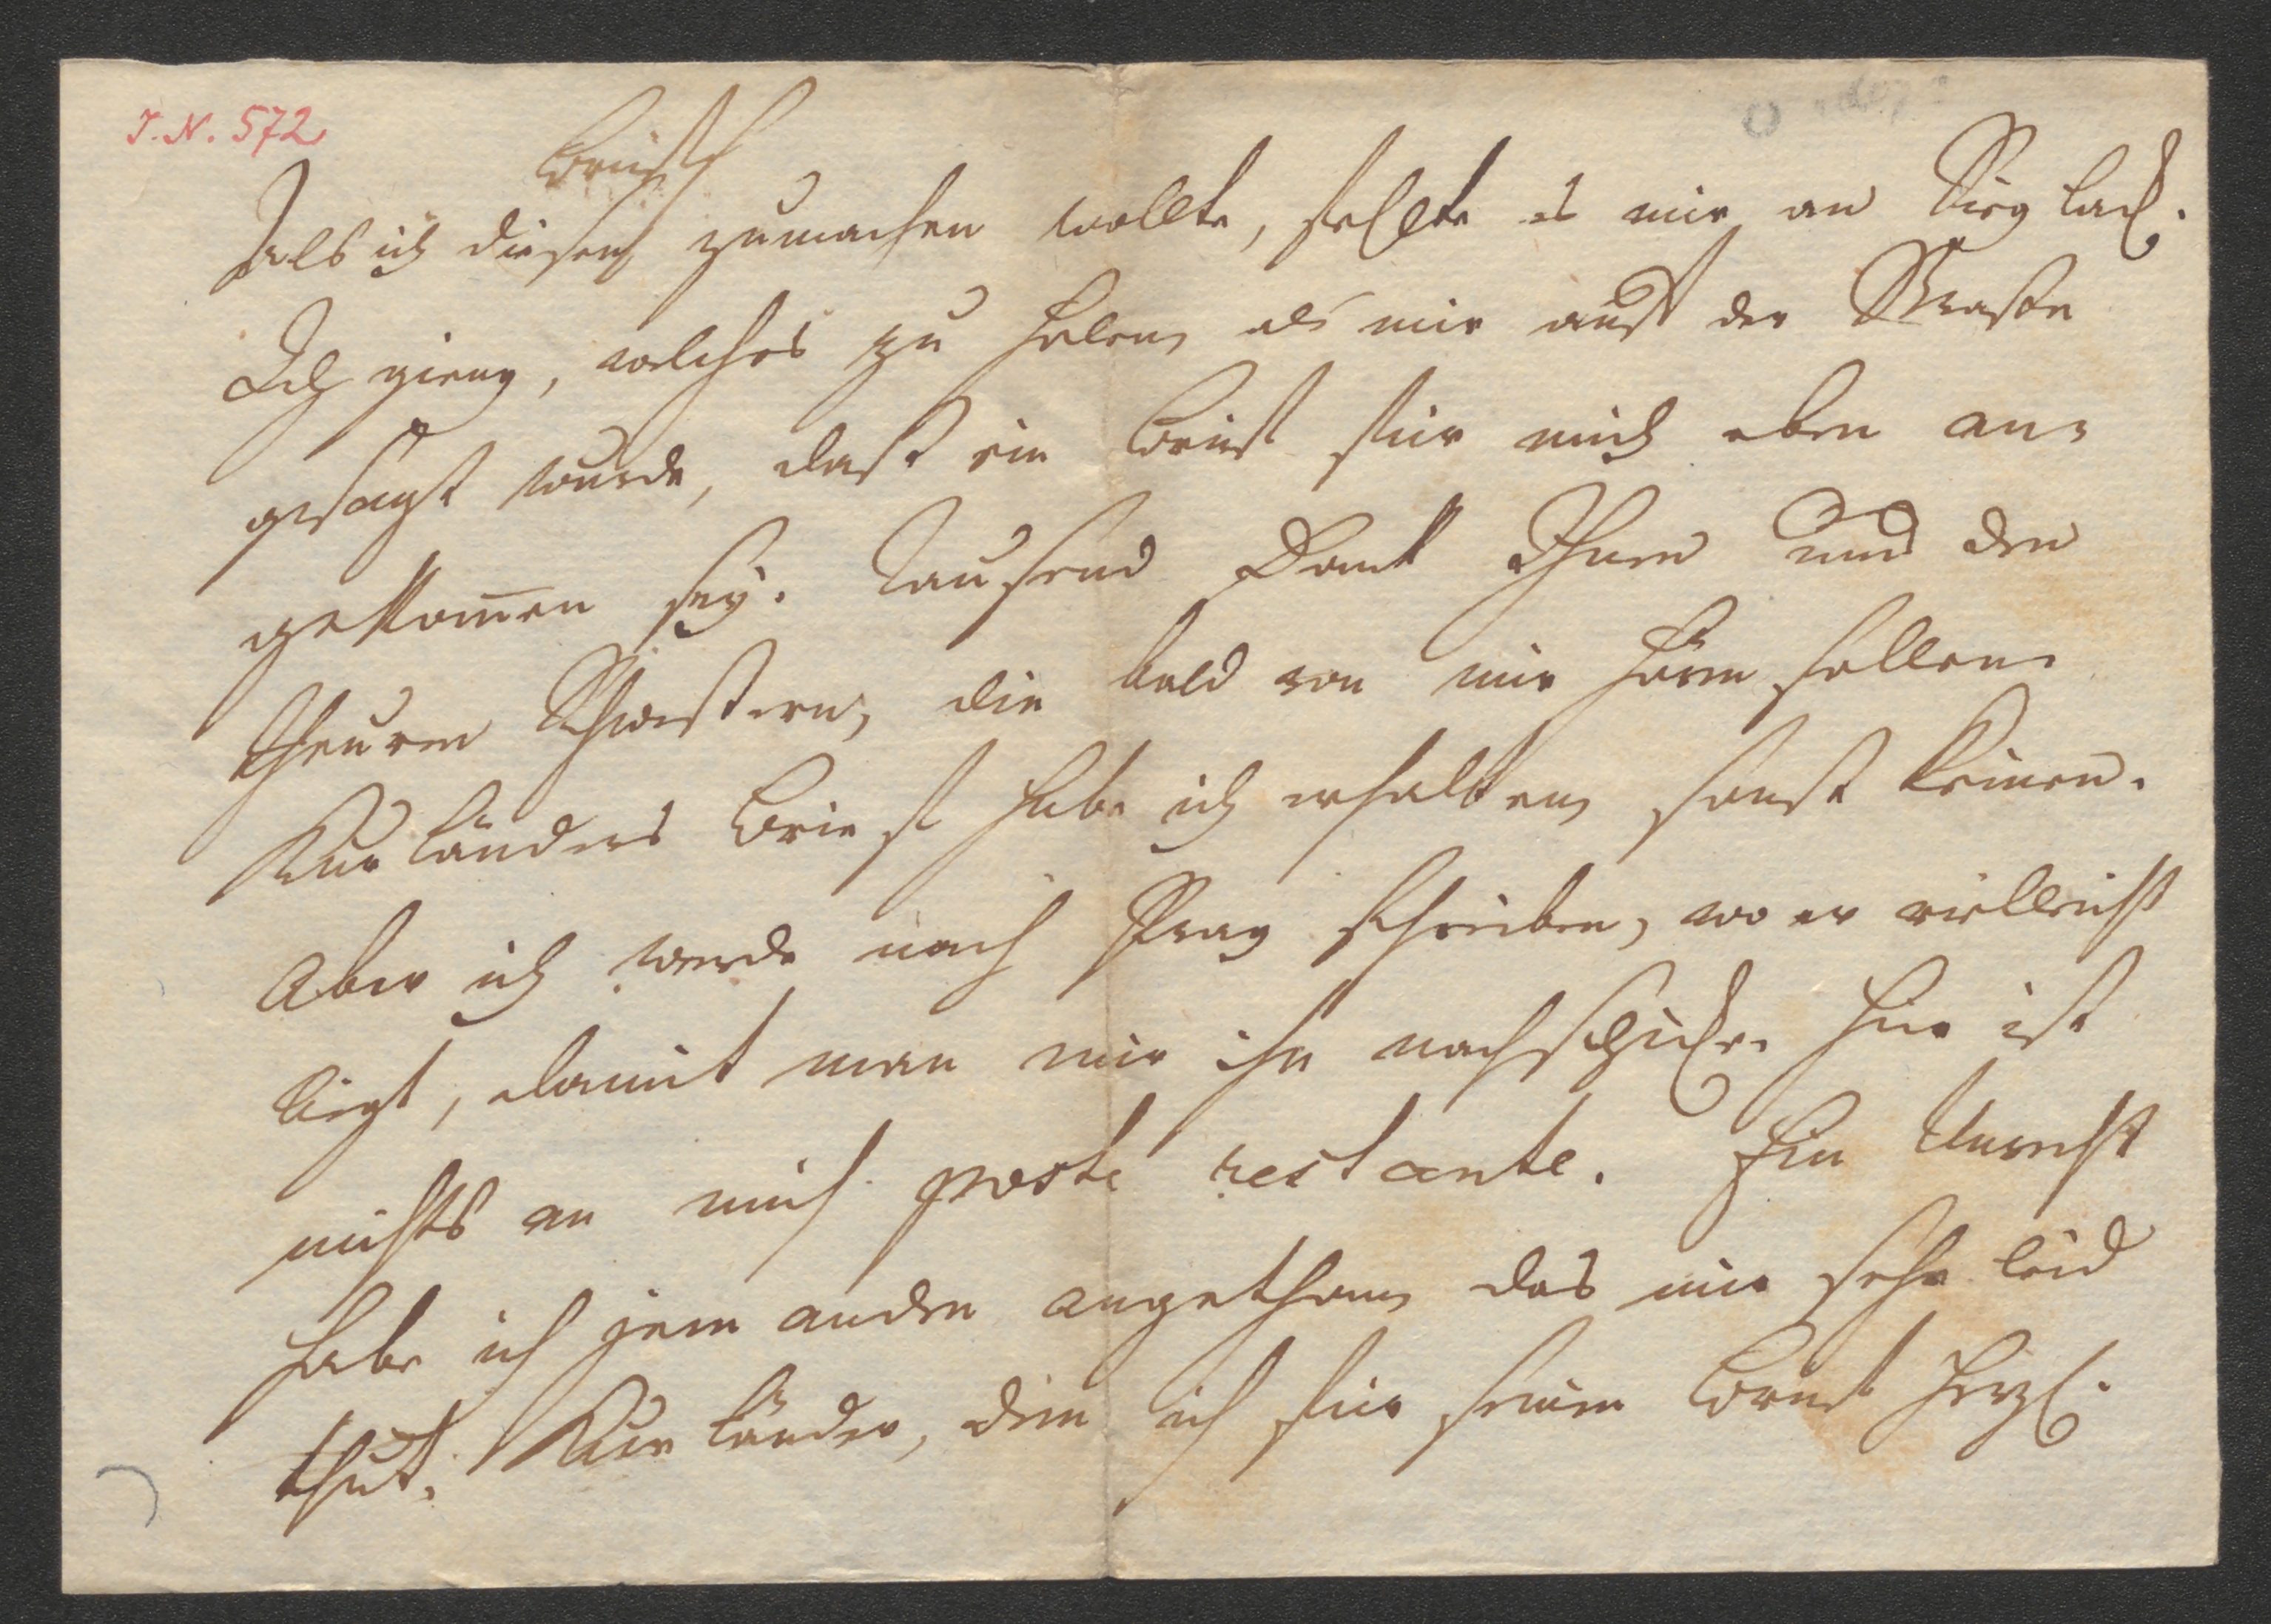 I. N. 572
Brief
Als ich diesen zumachen wollte, fehlte es mir an Sieglack.
Ich gieng, welches zu holen, als mir auf der Strasse
gesagt wurde, dass ein Brief für mich eben an-
gekom̅en sey. Tausend Dank Ihnen und den
theuren Schwestern, die bald von mir hören sollen.
Kurländers Brief habe ich erhalten, sonst keinen.
Aber ich werde nach Prag schreiben, wo er vielleicht
liegt, damit man mir ihn nachschicke. Hier ist
nichts an mich poste restante. Ein Unrecht
habe ich jem anden angethan, das mir sehr leid
thut. Kurländer, dem ich für seinen Brief herzl.